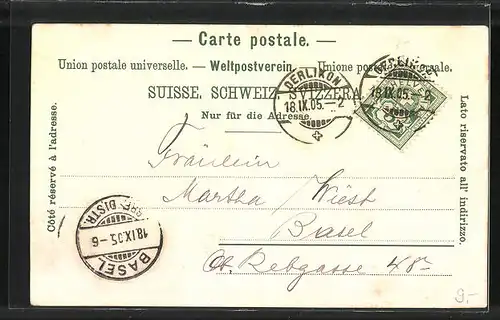 — Carte postale. —
Union postale universelle. — Weltpostverein. — Unione postale universale.
SUISSE. SCHWEIZ. SVIZZERA.
Nur für die Adresse.
Côté réservé à l'adresse.
Lato riservato all' indirizzo.
OERLIKON
18.IX.05.–2
OERLIKON
18.IX.05.–2
HELVETIA
Fräulein
Martha Wiest
Basel
Ob. Rebgasse
BASEL
18.IX.05.–6
BRF. DISTR.
9.-